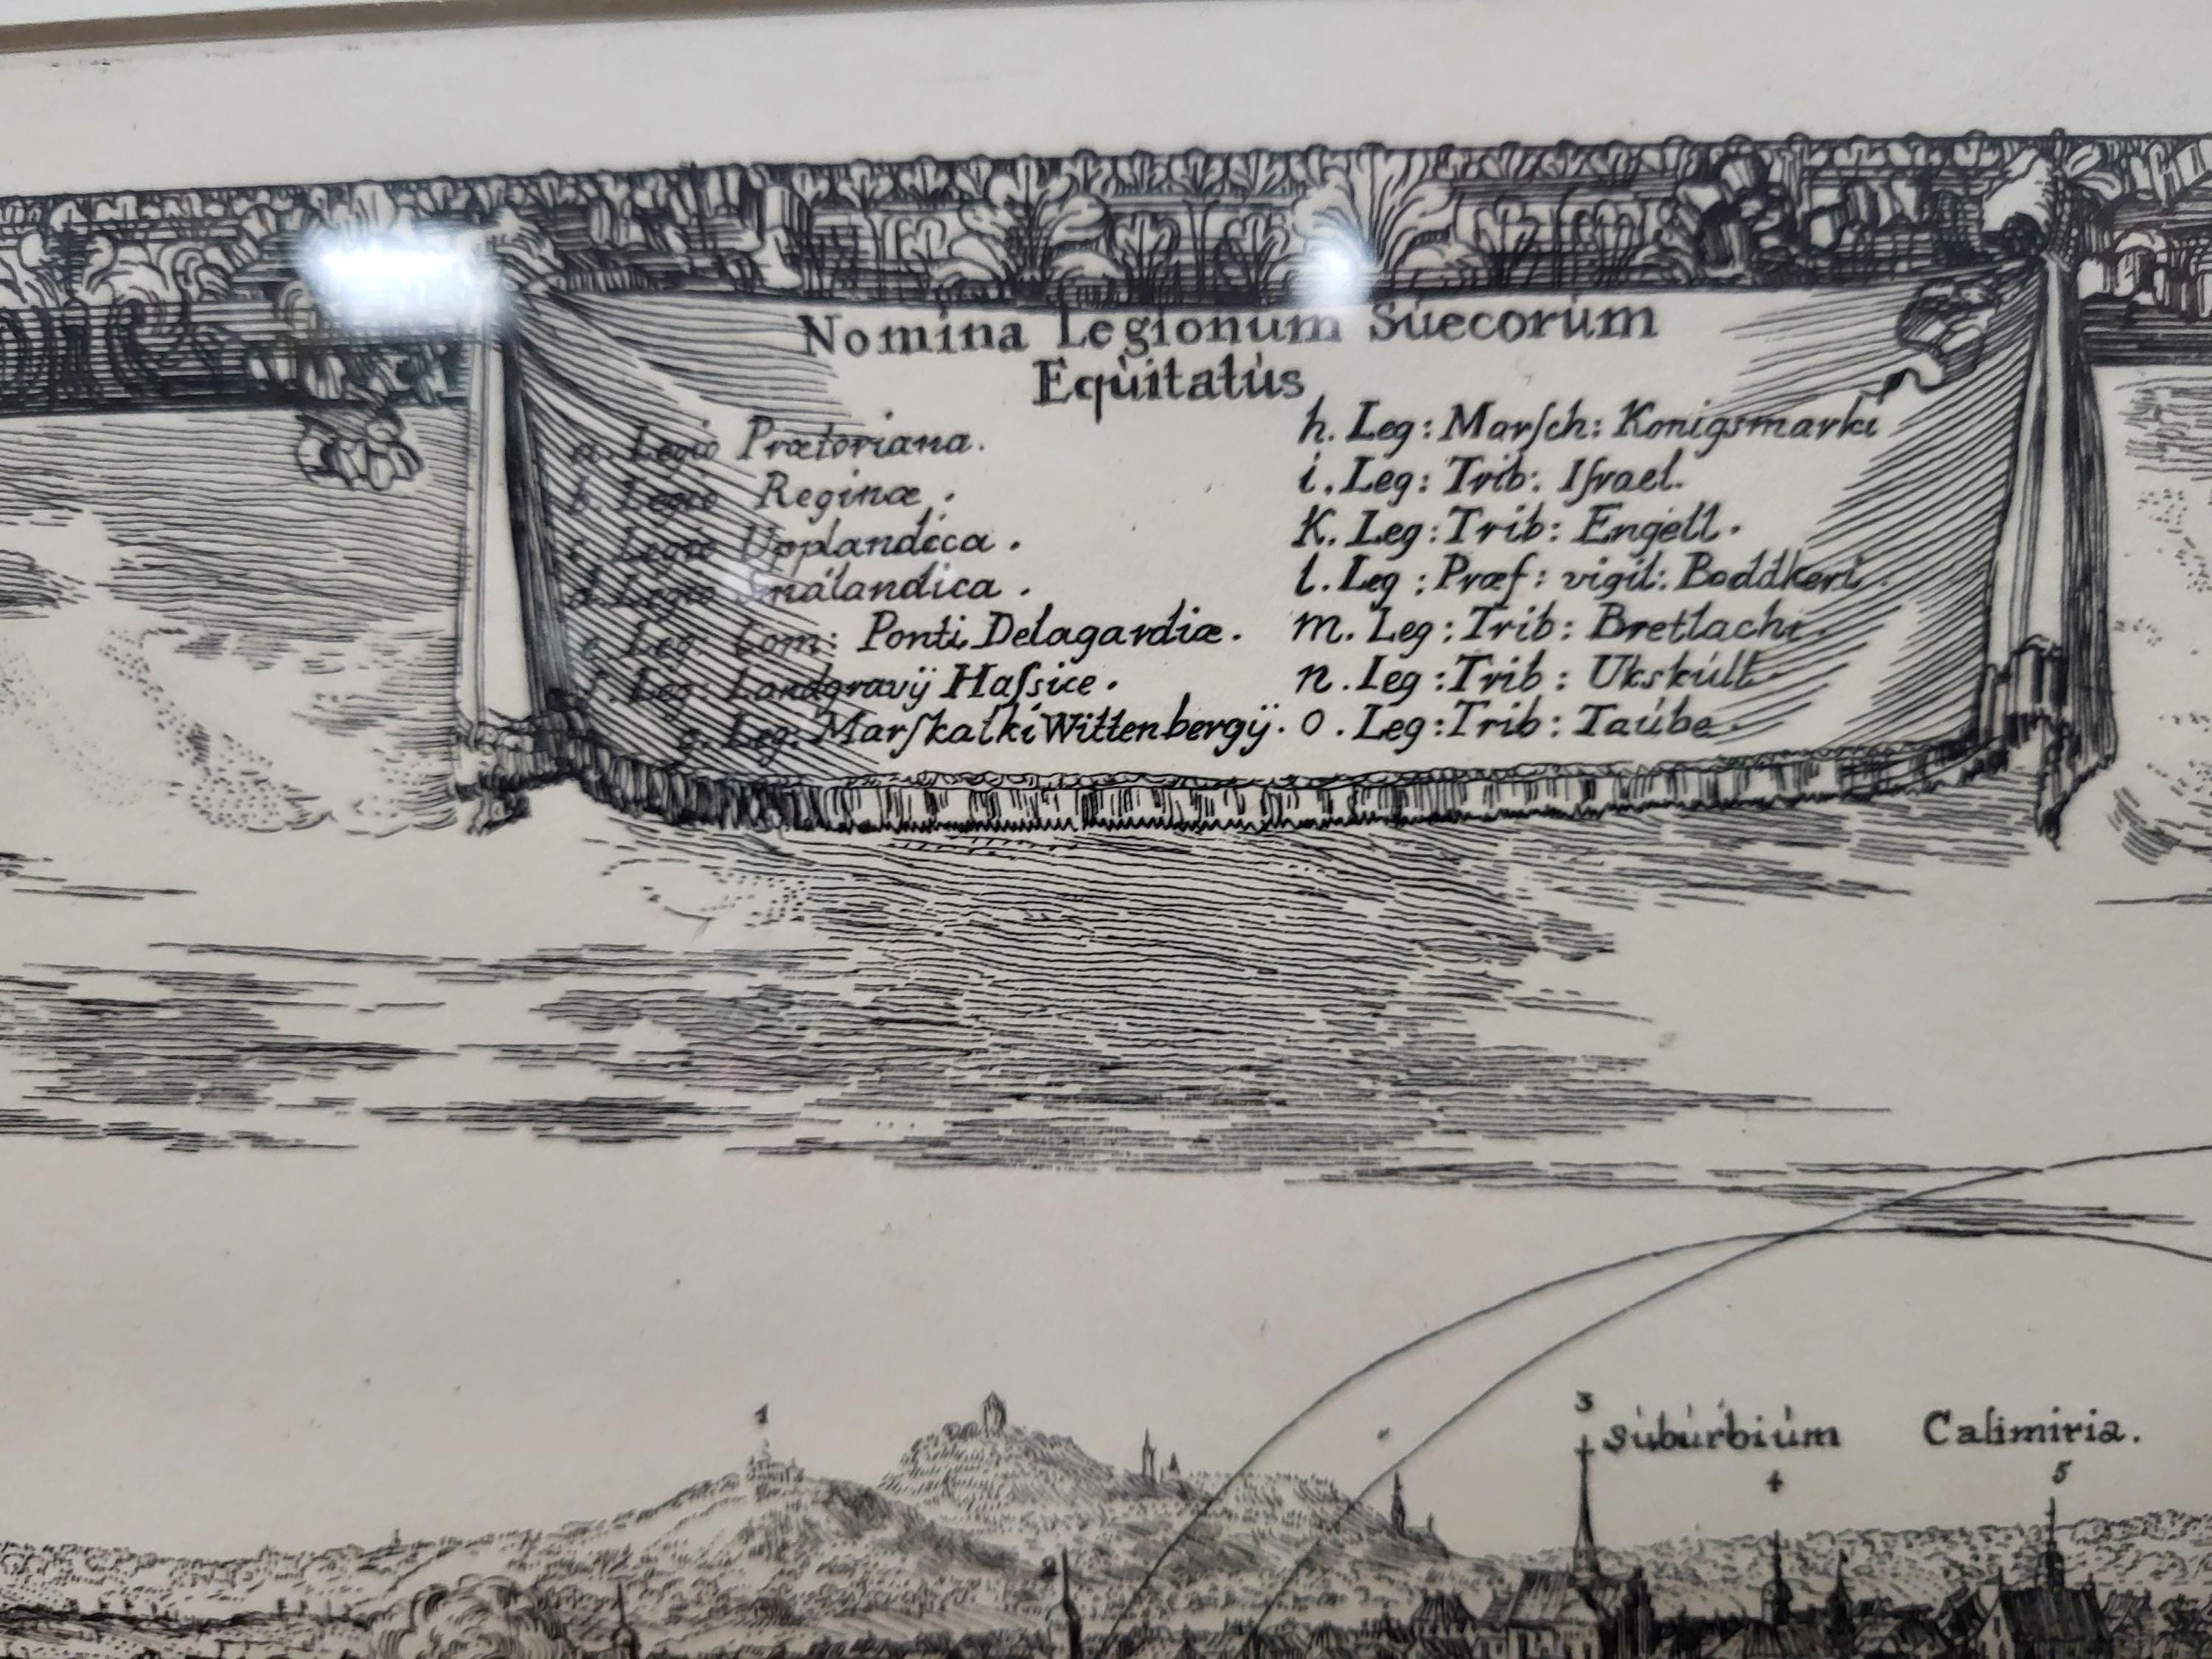 Nomina Legionum Suecorum
Equitatus
a. Legio Prætoriana.
b. Legio Reginæ.
c. Legio Upplandica.
d. Legio Smålandica.
e. Leg: Com: Ponti Delagardiæ.
f. Leg: Landgravÿ Haſsiæ.
g. Leg: Marſkalki Wittenbergÿ.
h. Leg: Marſch: Konigsmarki
i. Leg: Trib: Iſrael.
K. Leg: Trib: Engell.
l. Leg: Præf: vigil: Boddkeri.
m. Leg: Trib: Bretlachi.
n. Leg: Trib: Ukskúll.
o. Leg: Trib: Taúbe.
1
2
3
Súbúrbiúm Casimiria.
4
5